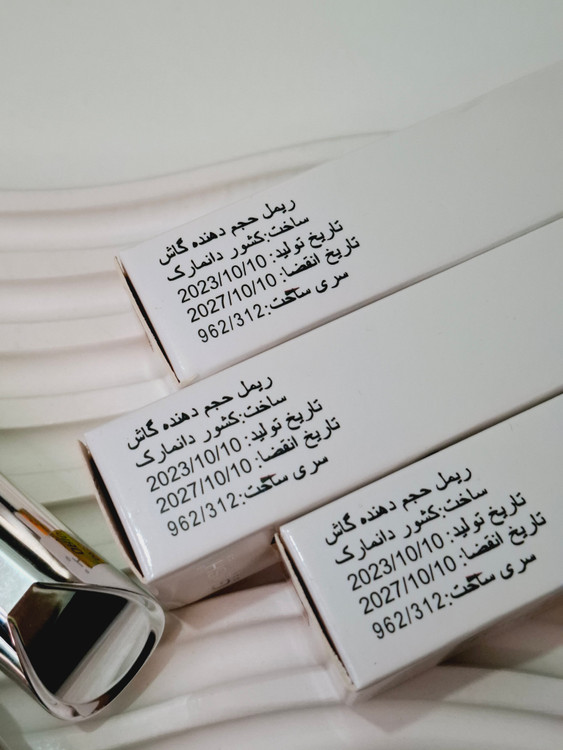 ریمل حجم دهنده گاش
ساخت:کشور دانمارک
تاریخ تولید: 2023/10/10
تاریخ انقضا: 2027/10/10
سری ساخت:962/312
ریمل حجم دهنده گاش
ساخت:کشور دانمارک
تاریخ تولید: 2023/10/10
تاریخ انقضا: 2027/10/10
سری ساخت:962/312
ریمل حجم دهنده گاش
ساخت:کشور دانمارک
تاریخ تولید: 2023/10/10
تاریخ انقضا: 2027/10/10
سری ساخت:962/312